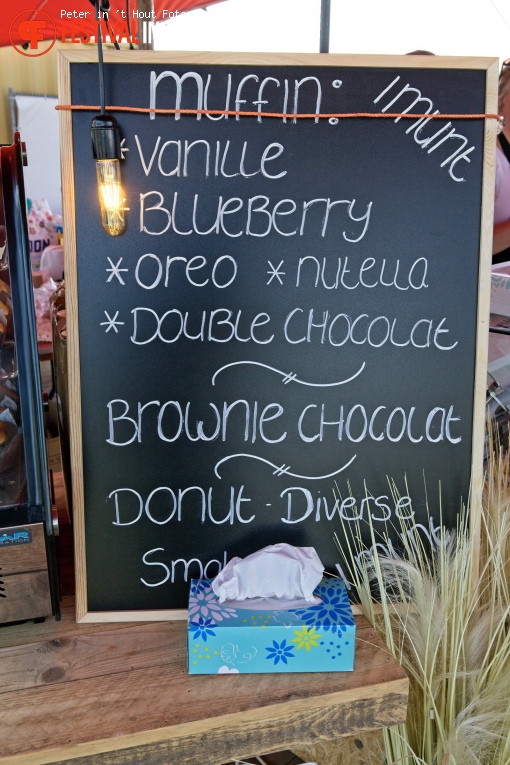 Peter in 't Hout Foto
FESTIVAL
muffin: 1 munt
*Vanille
*Blueberry
*Oreo *nutella
*Double Chocolat
Brownie Chocolat
Donut - Diverse